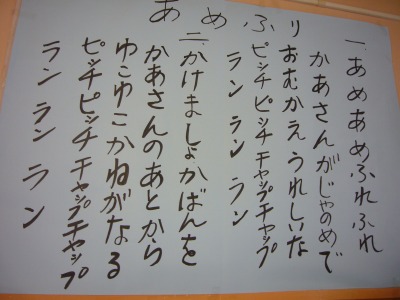 あめふり
一、あめあめふれふれ
かあさんがじゃのめで
おむかえうれしいな
ピッチピッチチャップチャップ
ランランラン
二、かけましょかばんを
かあさんのあとから
ゆこゆこかねがなる
ピッチピッチチャップチャップ
ランランラン